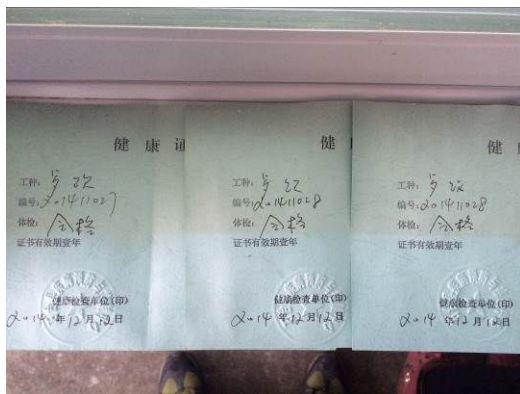 健 康 证
工种:
编号:201411027
体检:合格
证书有效期壹年
健康检查单位(印)
2014年12月12日
健
工种:
编号:201411028
体检:合格
证书有效期壹年
健康检查单位(印)
2014年12月12日
健
工种:
编号:201411028
体检:合格
证书有效期壹年
健康检查单位(印)
2014年12月12日